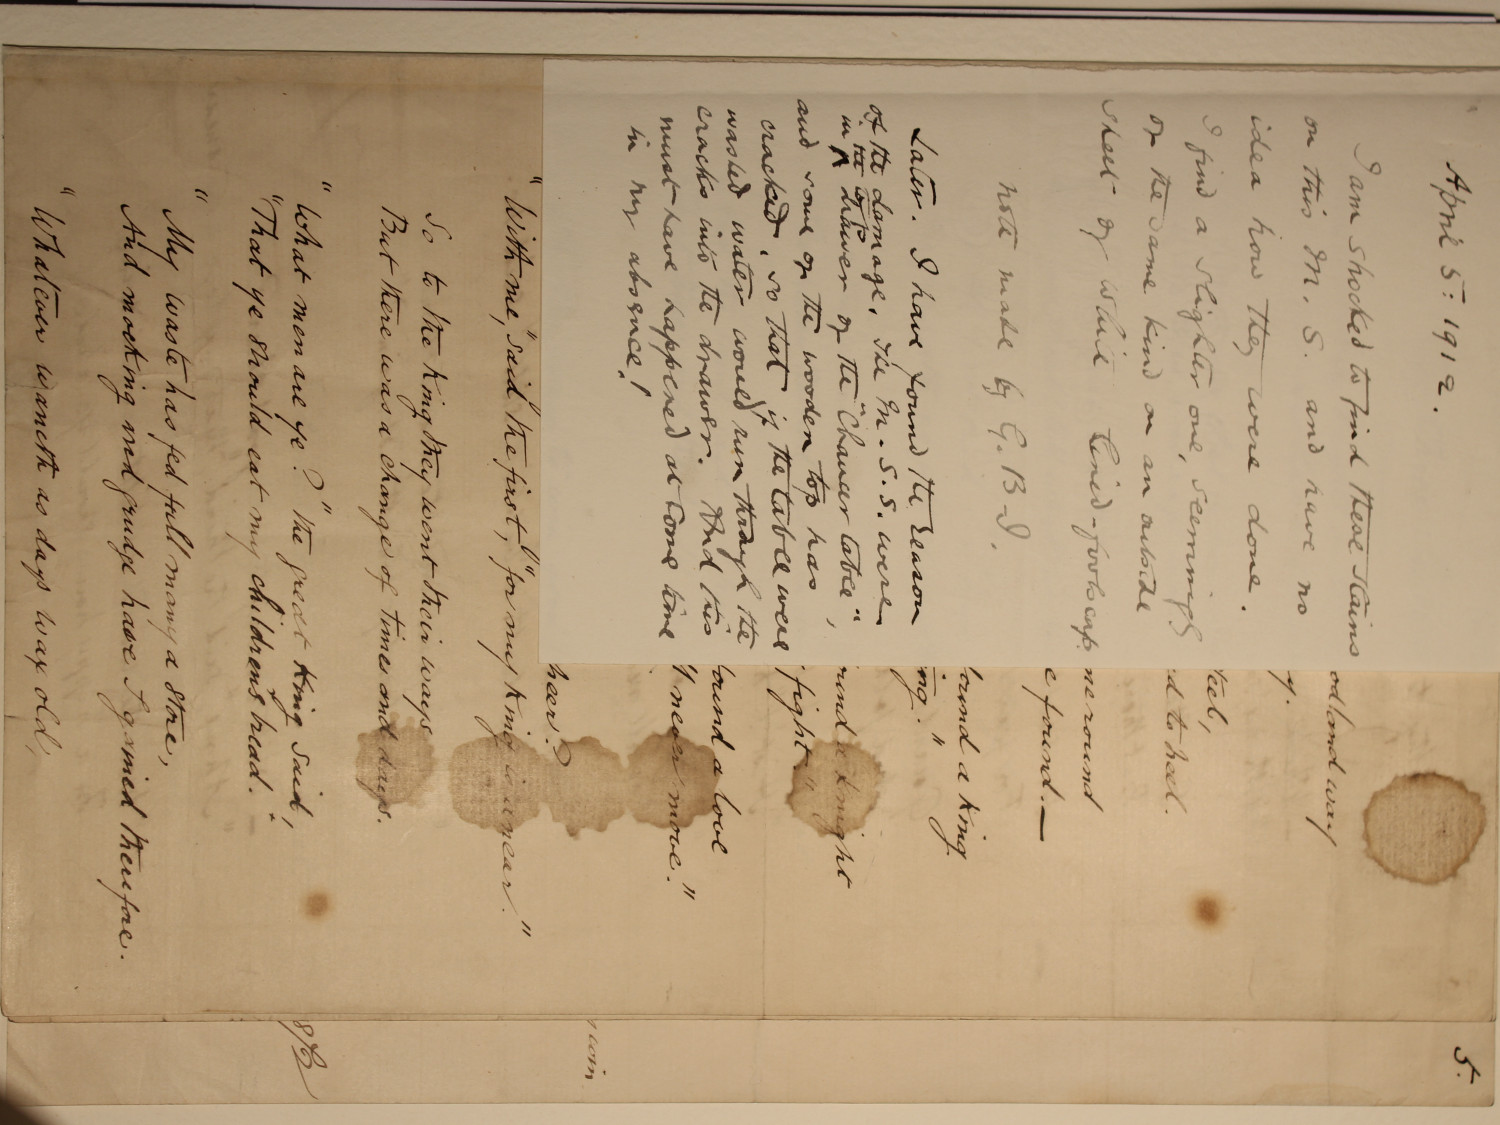 April 5: 1912.
I am shocked to find these stains
on this M.S. and have no
idea how they were done.
I find a slighter one, seemingly
of the same kind on an outside
sheet of white lined-foolscap
note made by G.B-J.
Later. I have found the reason
of the damage. The M.S.S. were
in the top drawer of the "Chaucer table",
and some of the wooden top has
cracked, so that if the table were
washed water would run through the
cracks into the drawer. And this
must have happened at some time
in my absence!
5.
odland way
y.
teel,
d to heel.
ne round
e found.—
ound a king
ing."
ound a knight
fight"
ound a love
never move."
heer?
"With me," said the first, "for my King is near."
So to the King they went their ways
But there was a change of times and days.
"What men are ye?" the great King said,
"That ye should eat my children's bread."
"My waste has fed full many a store,
And mocking and grudge have I gained therefore.
"Whatever waneth as days wax old,